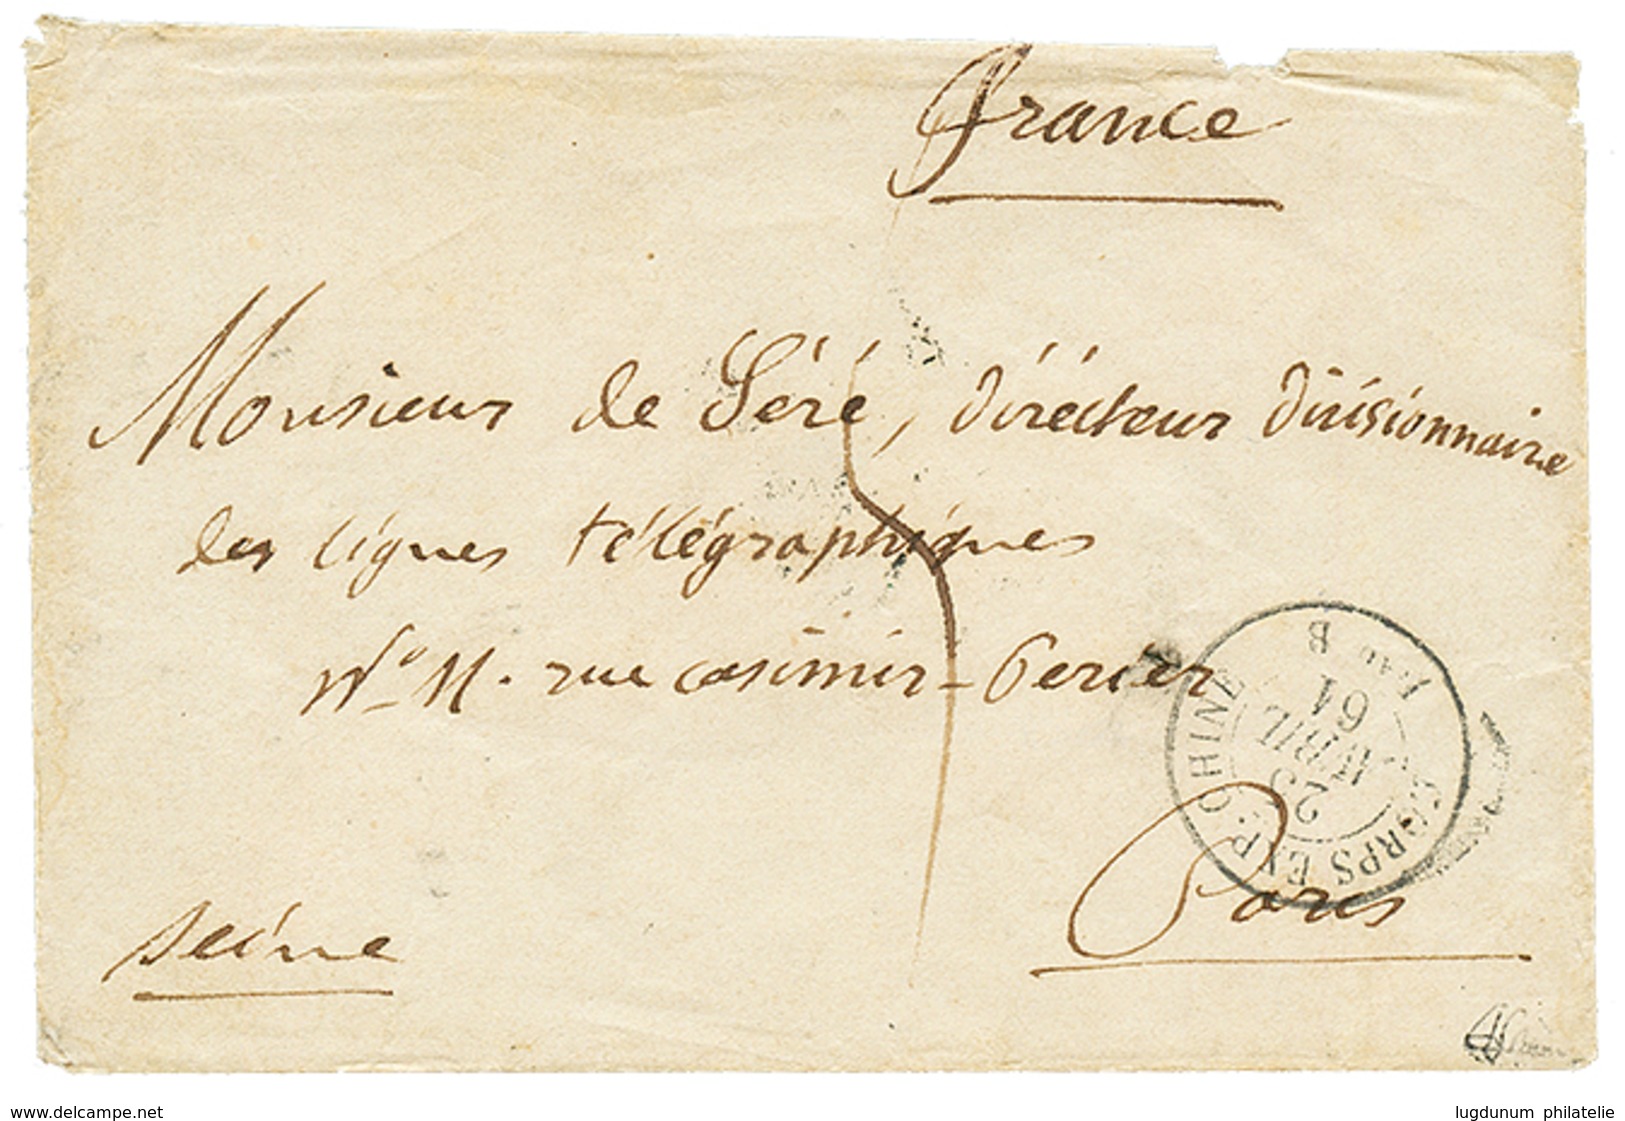 France
Monsieur de Séré, directeur divisionnaire
des lignes télégraphiques
N° 11. rue casimir-Perier
CORPS EXP. CHINE
29
AVRIL
61
Bau B
Paris
seine
www.delcampe.net
lugdunum philatelie